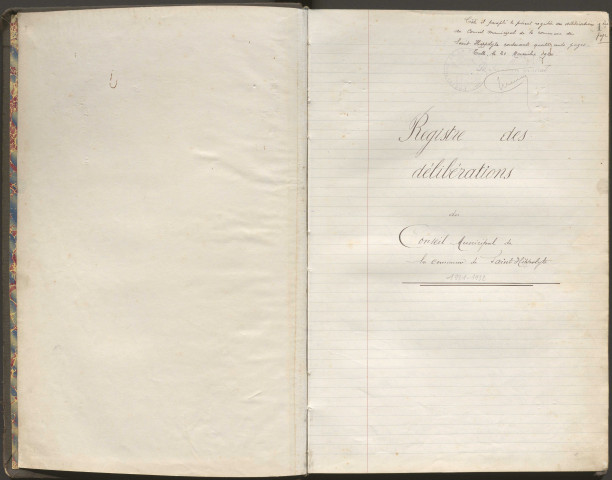 Coté et paraphé le présent registre des délibérations
du Conseil municipal de la commune de
Saint Hippolyte contenant quatre cents pages.
Tulle, le
1re
page
Registre des
délibérations
du
Conseil Municipal de
la commune de Saint-Hippolyte